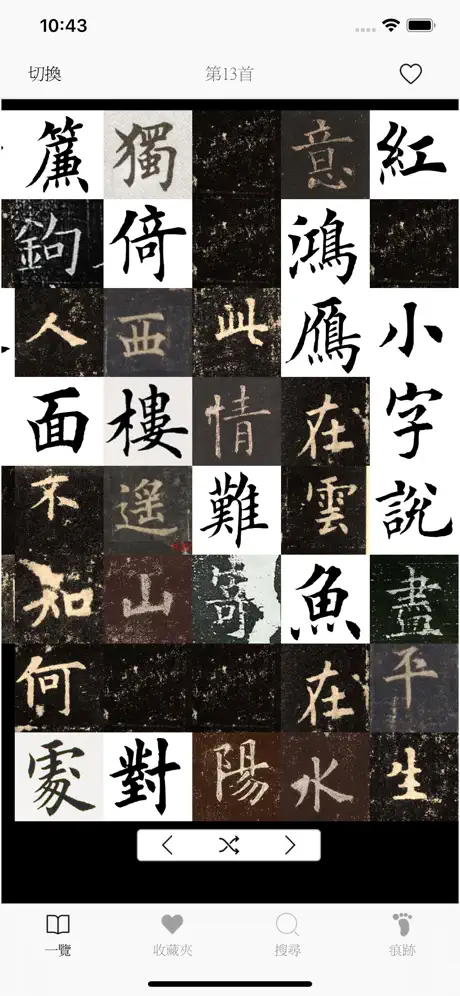 10:43
切換
第13首
紅小字說盡平生
意鴻鴈在雲魚在水
此情難寄陽
獨倚西樓遙山對
簾鉤人面不知何處
一覽
收藏夾
搜尋
痕跡